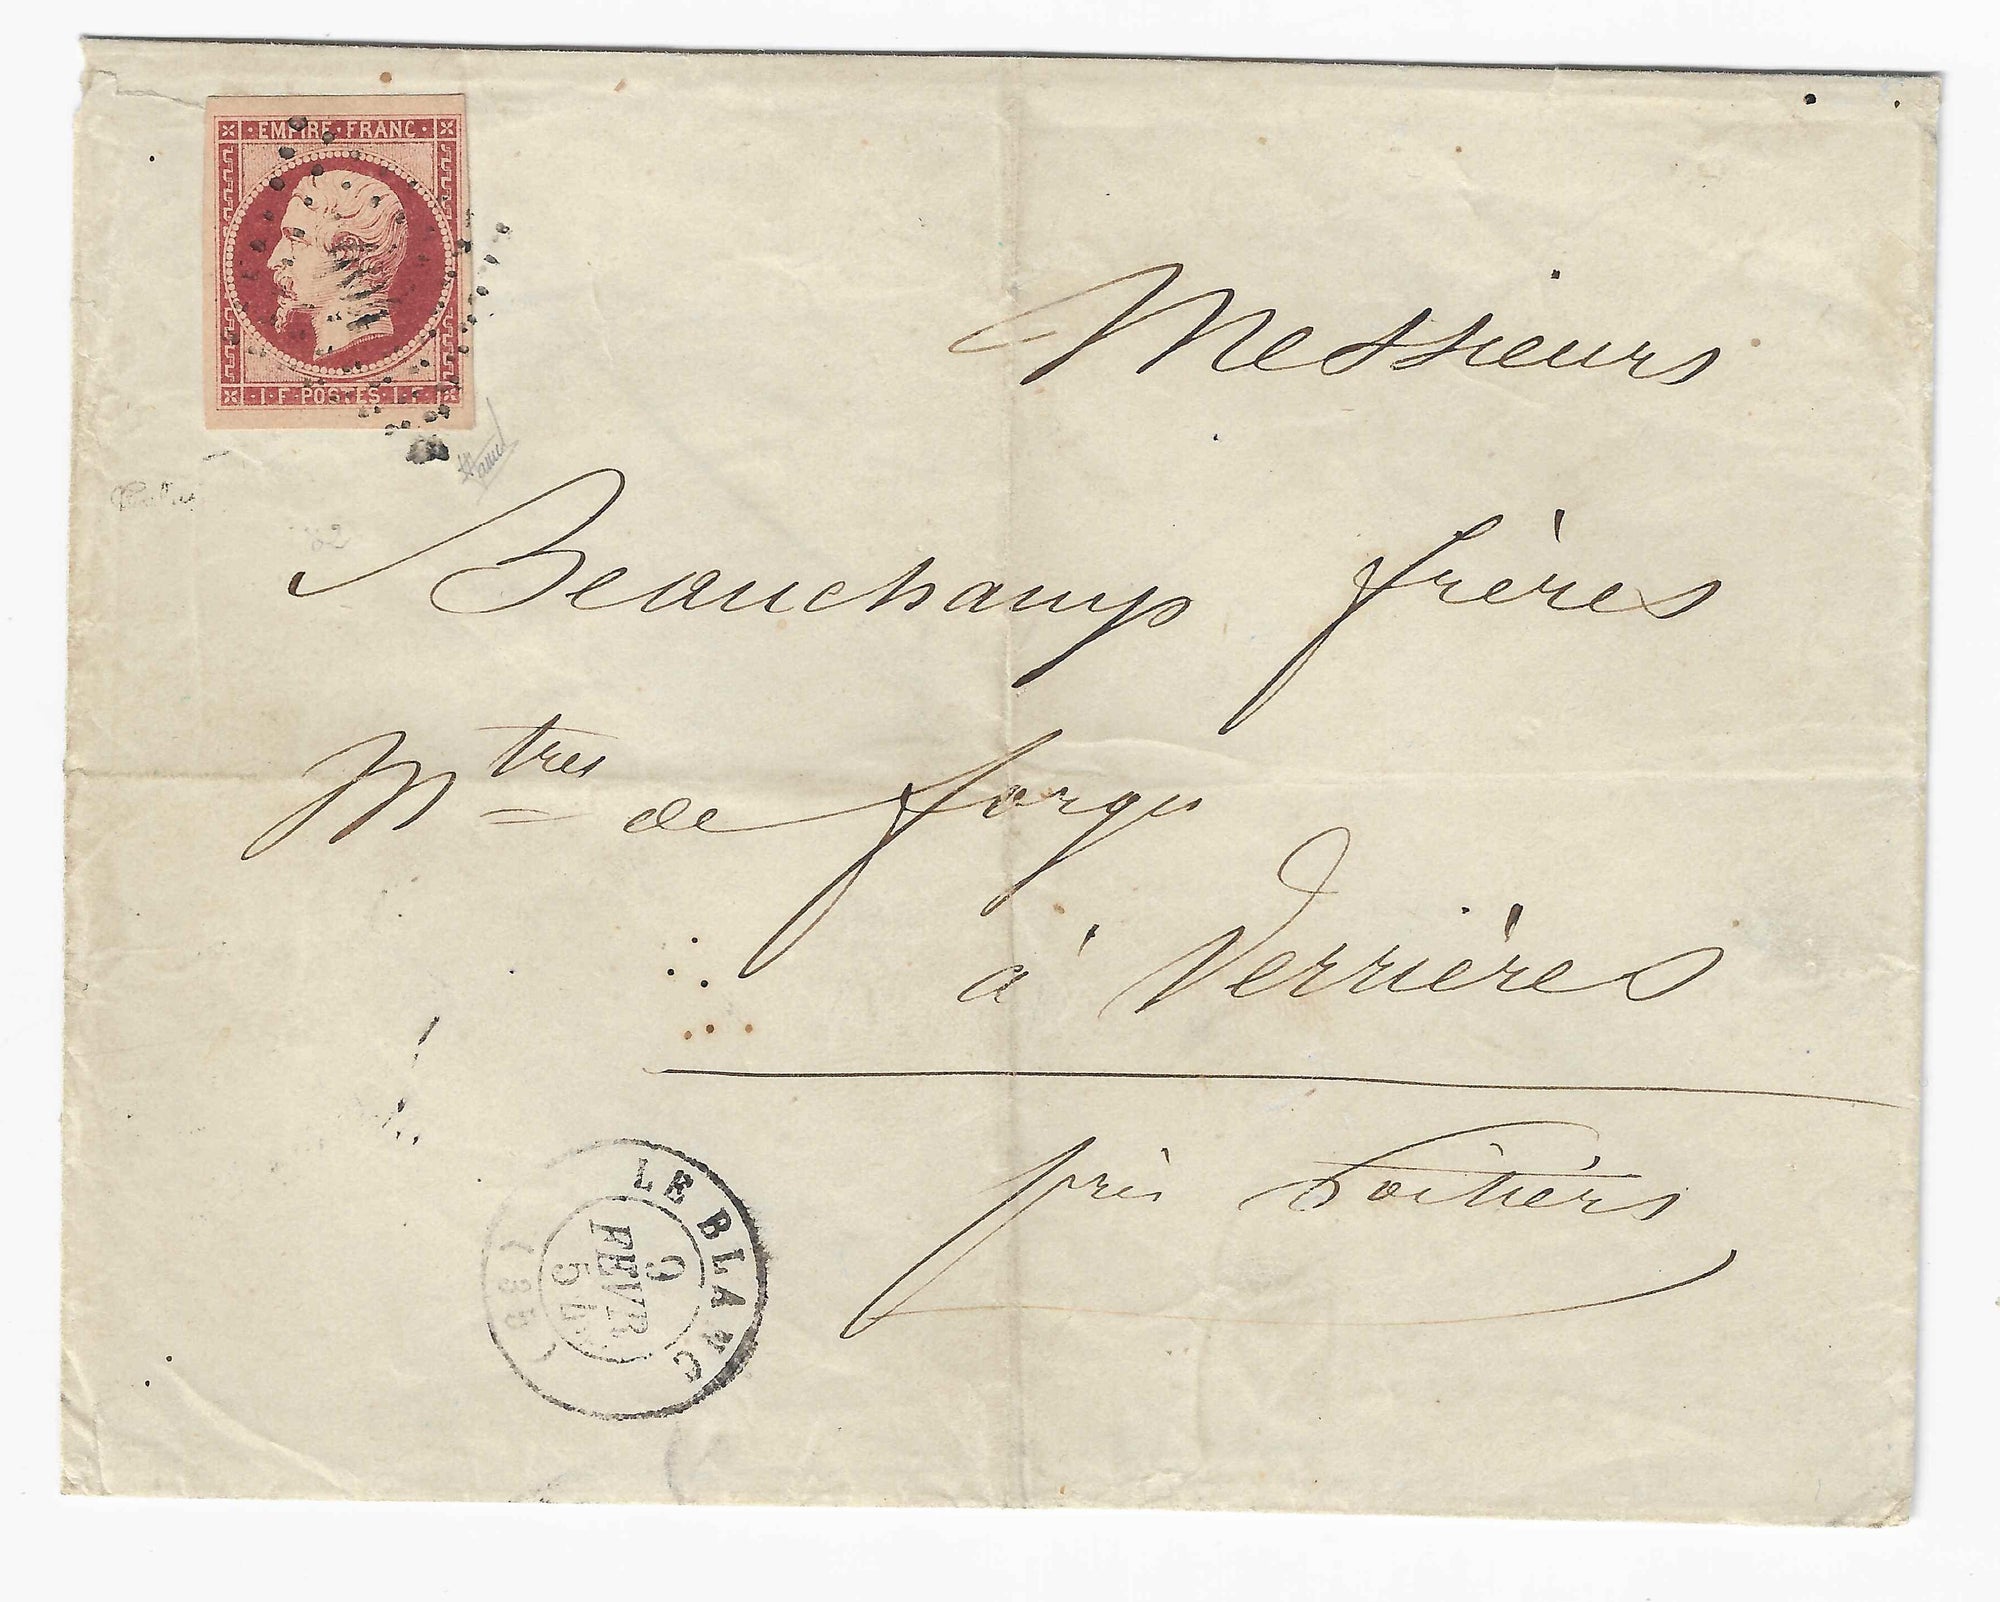 · EMPIRE · FRANC ·
· 1 · F · POSTES · 1 · F ·
Messieurs
Beauchamp frères
Mtres de forges
à Verrières
près Poitiers
LE BLANC
9
FEVR
54
(35)